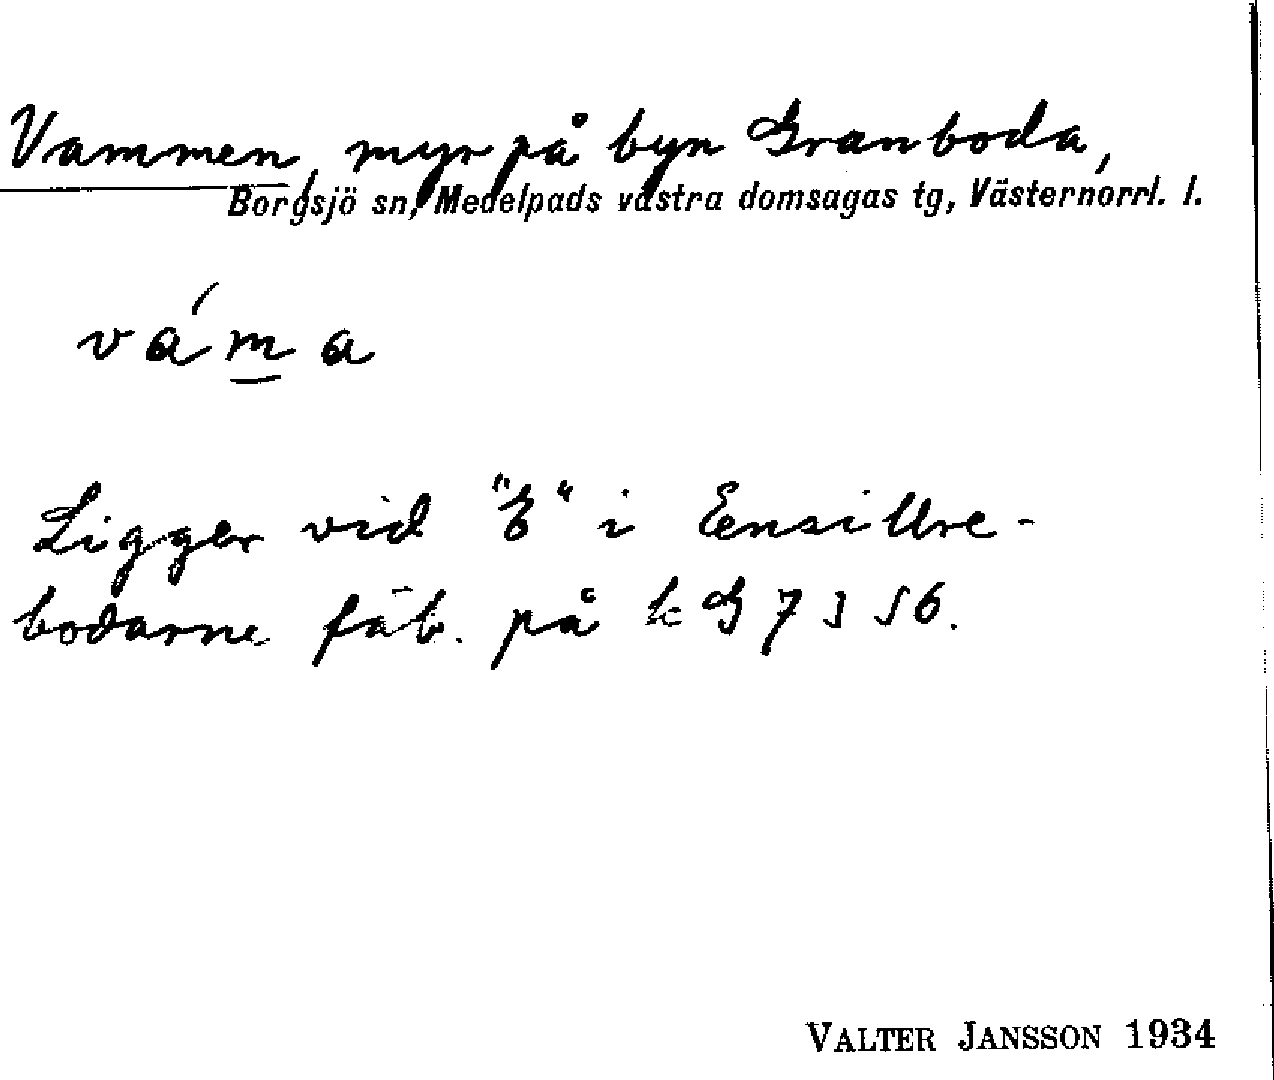 Vammen, myr på byn Granboda,
Borgsjö sn, Medelpads västra domsagas tg, Västernorrl. l.
váma
Ligger vid "E" i Ensillre-
bodarne fäb. på k G 7356.
VALTER JANSSON 1934